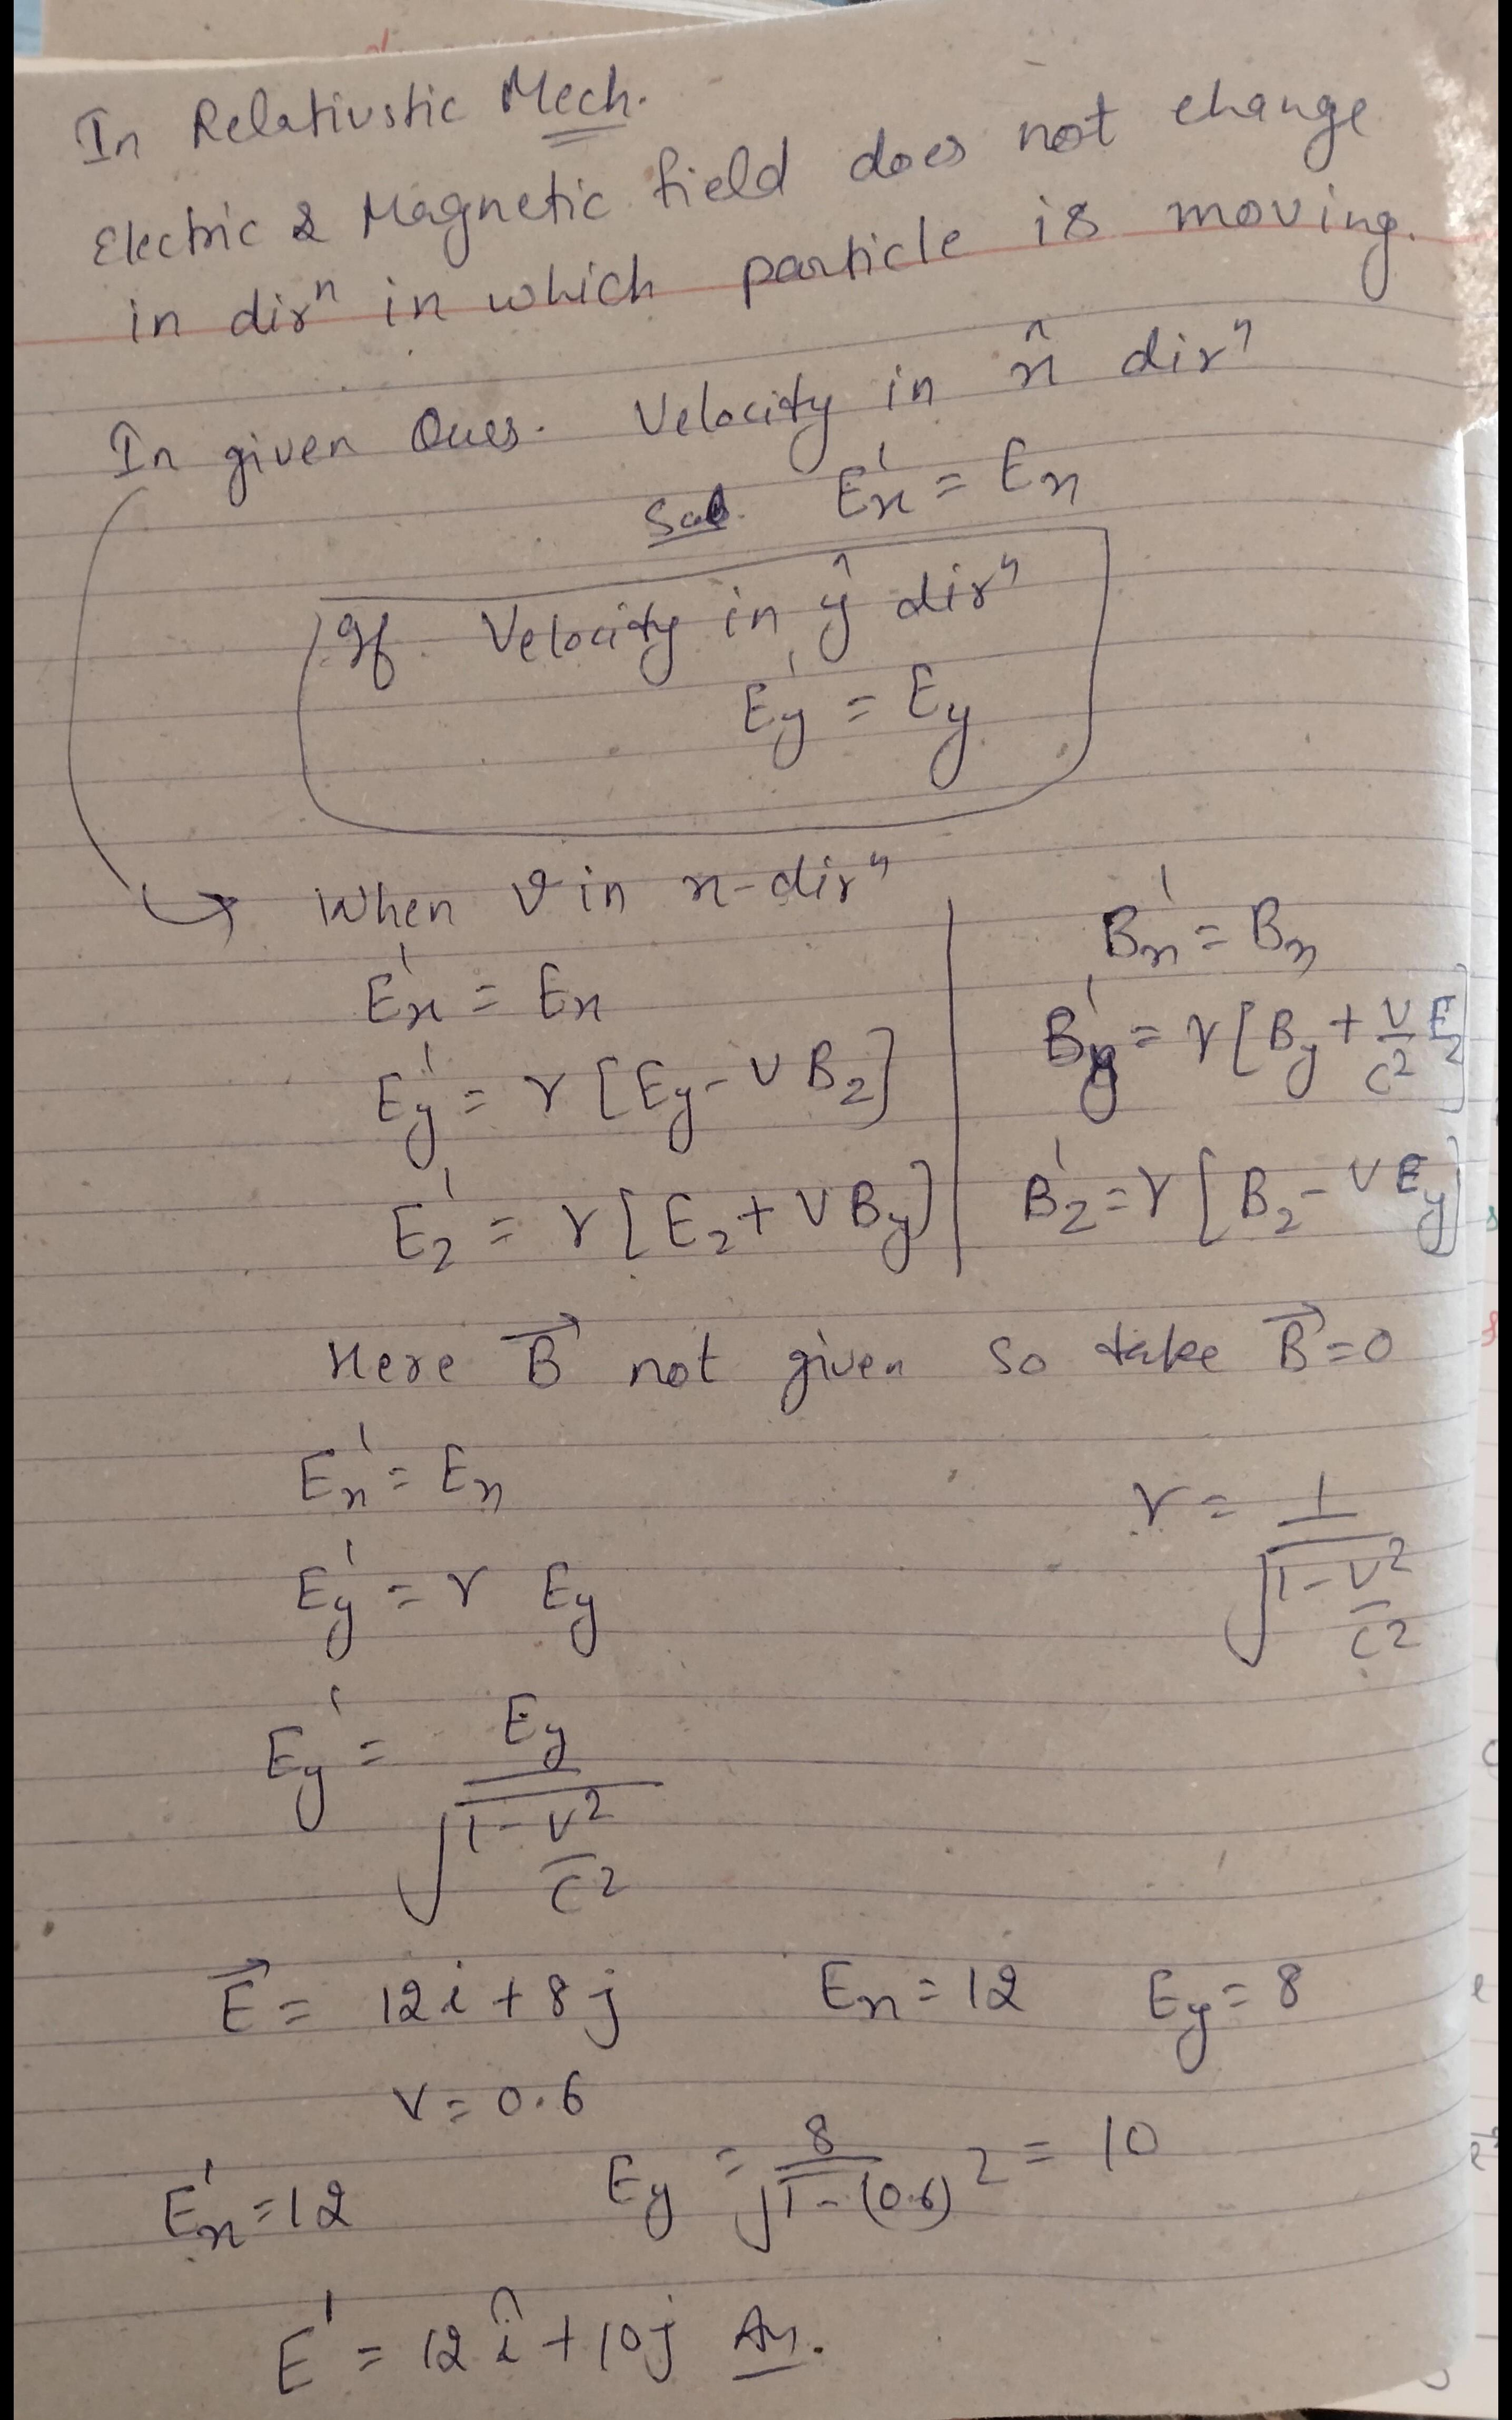 In Relativstic Mech.
Electric & Magnetic field does not change
in dirⁿ in which particle is moving.
In given Ques. Velocity in x̂ dirⁿ
Sol. Ex' = Ex
If Velocity in ŷ dirⁿ
Ey' = Ey
→ When v in x-dirⁿ
Ex' = Ex
Ey' = γ [Ey - V Bz]
Ez' = γ [Ez + V By]
Bx' = Bx
By' = γ [By + V/c² Ez]
Bz' = γ [Bz - V Ey]
Here B⃗ not given so take B⃗ = 0
Ex' = Ex
γ = 1/√(1 - V²/c²)
Ey' = γ Ey
Ey' = Ey/√(1 - V²/c²)
E⃗ = 12i + 8j Ex = 12 Ey = 8
V = 0.6
Ex' = 12 Ey = 8/√(1-(0.6)²) = 10
E' = 12î + 10j Ans.